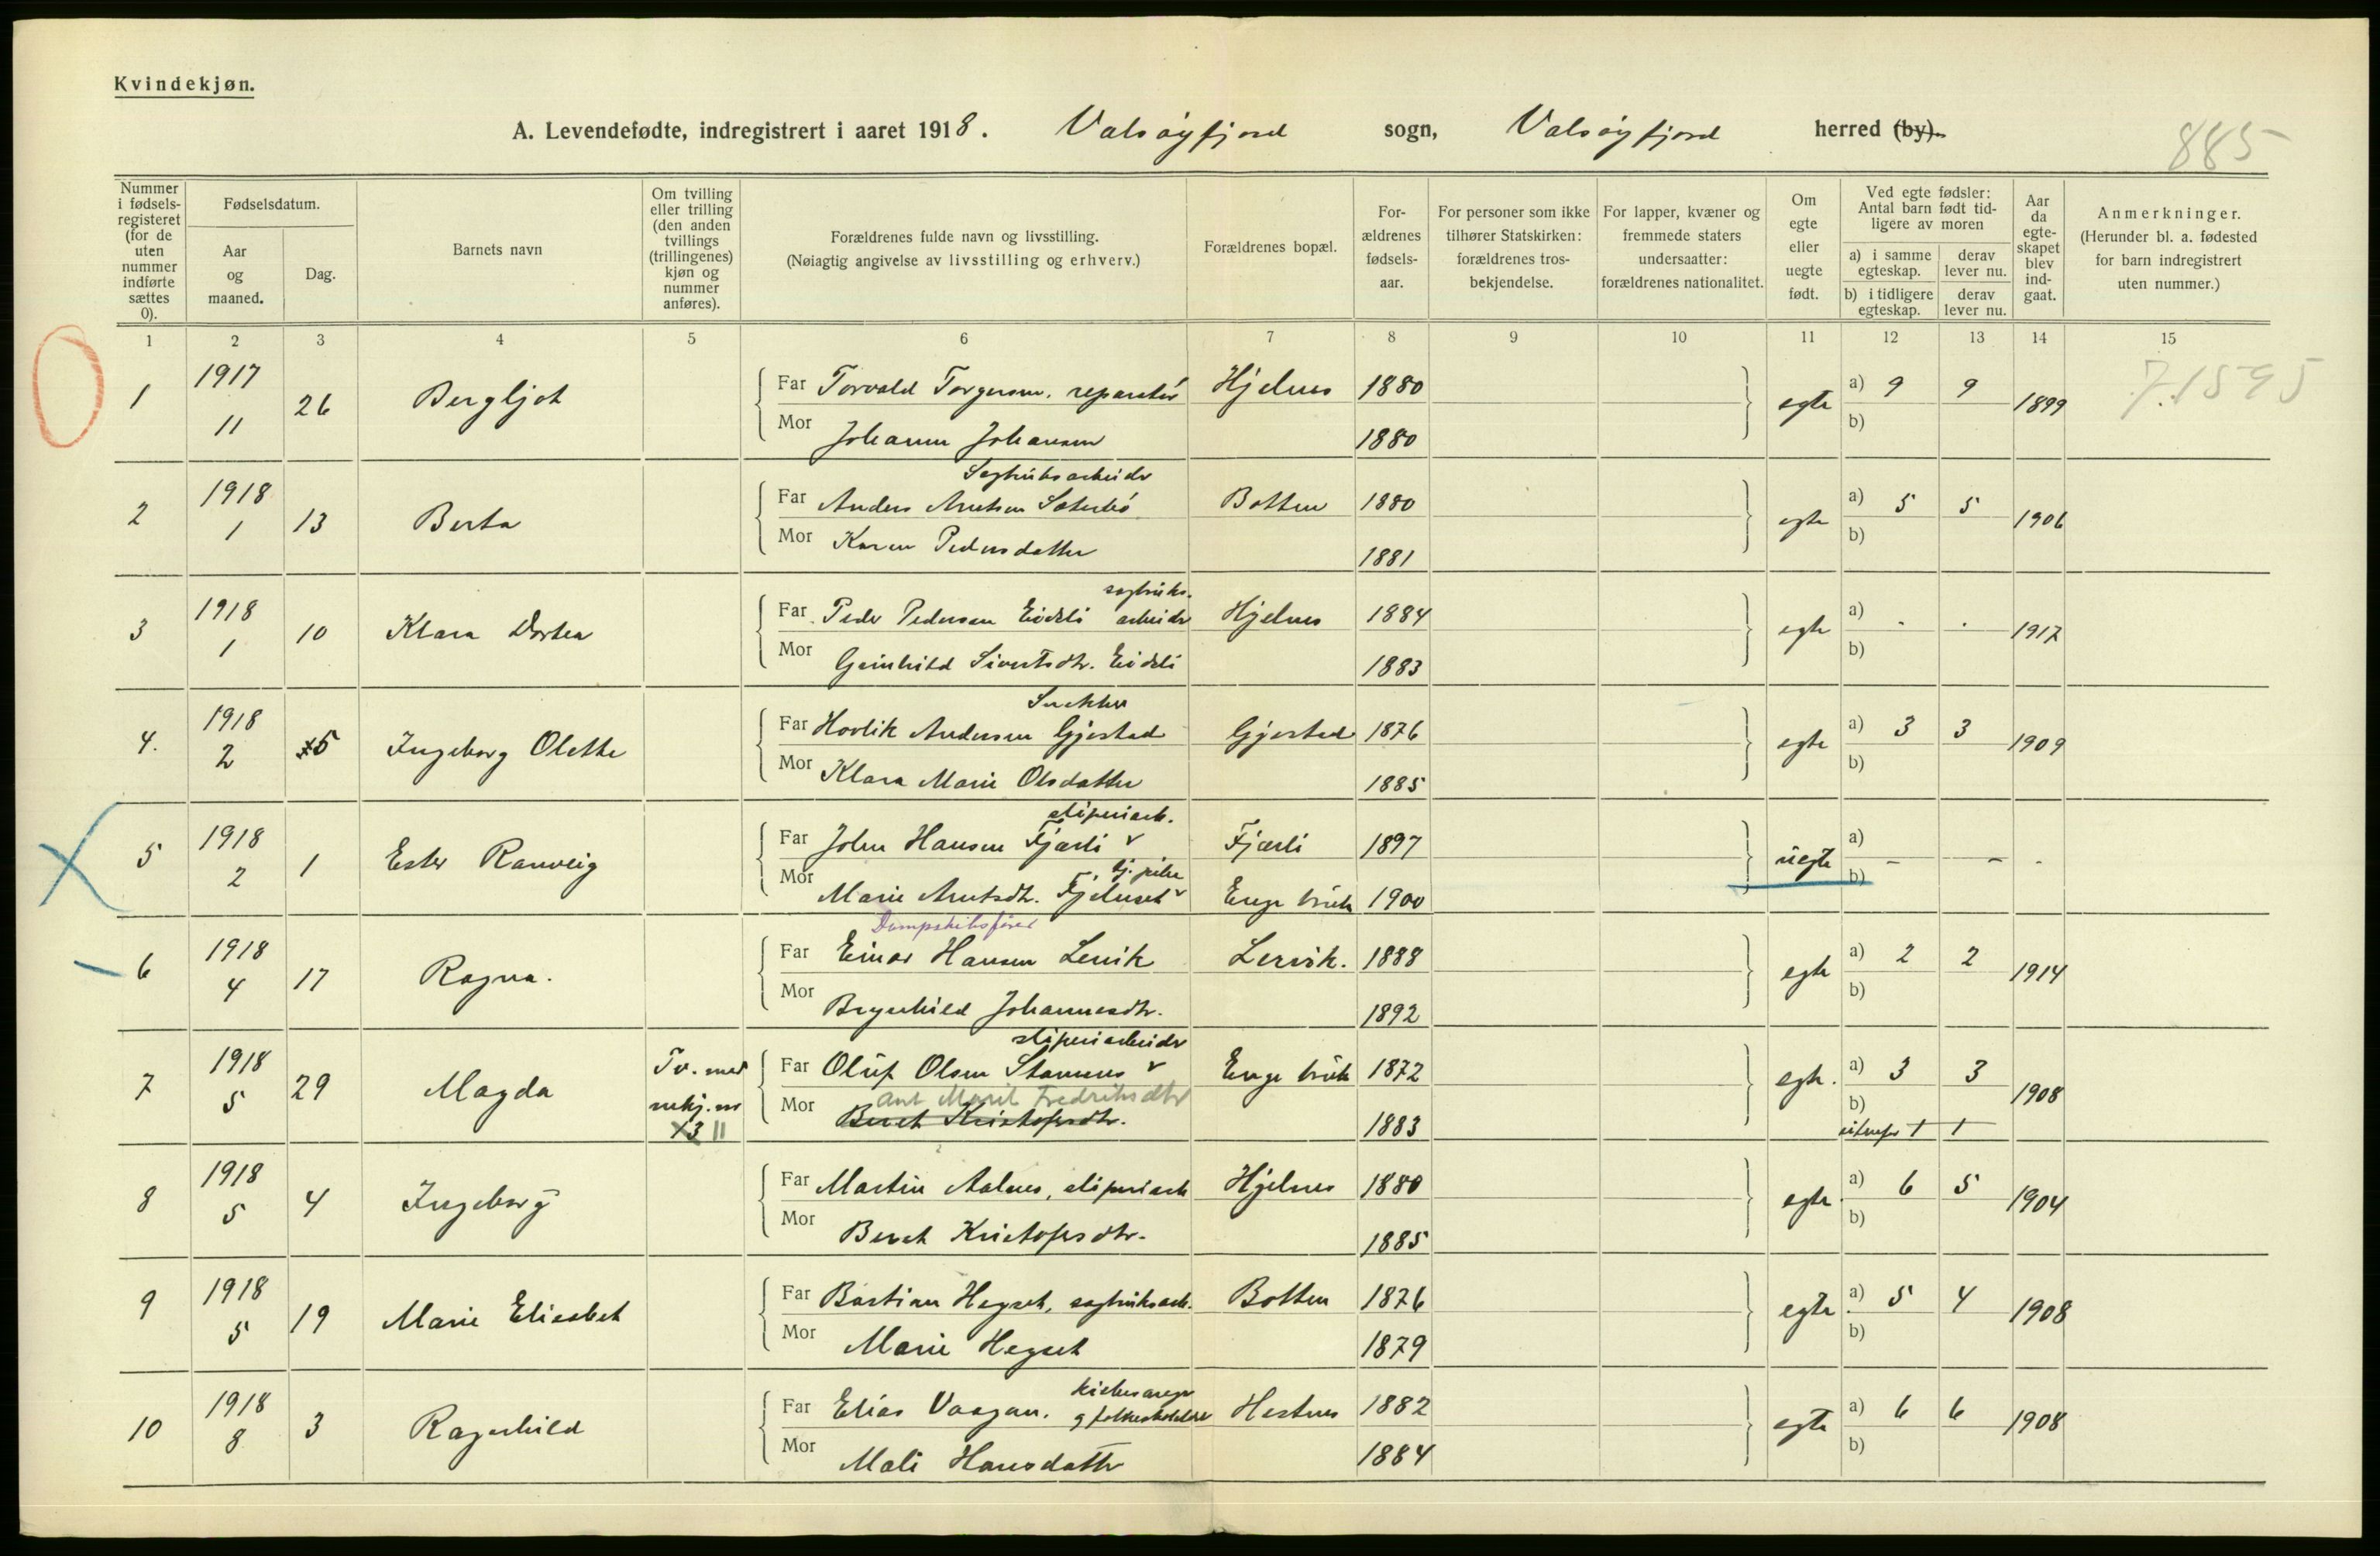 Kvindekjøn.
A. Levendefødte, indregistrert i aaret 1918. Valsøyfjord sogn, Valsøyfjord herred (by).
885
Nummer i fødsels-registeret (for de uten nummer indførte sættes 0).
Fødselsdatum.
Aar og maaned.
Dag.
Barnets navn
Om tvilling eller trilling (den anden tvillings (trillingenes) kjøn og nummer anføres).
Forældrenes fulde navn og livsstilling.
(Nøiagtig angivelse av livsstilling og erhverv.)
Forældrenes bopæl.
For-ældrenes fødsels-aar.
For personer som ikke tilhører Statskirken: forældrenes tros-bekjendelse.
For lapper, kvæner og fremmede staters undersaatter: forældrenes nationalitet.
Om egte eller uegte født.
Ved egte fødsler: Antal barn født tid-ligere av moren
a) i samme egteskap.
derav lever nu.
b) i tidligere egteskap.
derav lever nu.
Aar da egte-skapet blev ind-gaat.
Anmerkninger.
(Herunder bl. a. fødested for barn indregistrert uten nummer.)
1 2 3 4 5 6 7 8 9 10 11 12 13 14 15
1 1917 11 26 Bergljot Far Torvald Torgersen. reparatør Hjelnes 1880 egte a) 9 9 1899 7.1595
Mor Johanna Johansen 1880 b)
Sagbruksarbeider
2 1918 1 13 Berta Far Anders Arntsen Sæterbø Botten 1880 egte a) 5 5 1906
Mor Karen Pedersdatter 1881 b)
sagbruks.
3 1918 1 10 Klara Dortea Far Peder Pedersen Eidsli arbeider Hjelnes 1884 egte a) - - 1917
Mor Gunhild Sivertsdtr. Eidsli 1883 b)
Snekker
4. 1918 2 5 Ingeborg Olette Far Hovlik Andersen Gjerstad Gjerstad 1876 egte a) 3 3 1909
Mor Klara Marie Olsdatter 1885 b)
sliperiarb.
5 1918 2 1 Ester Ranveig Far John Hansen Fjærli Fjærli 1897 uegte a)
Mor Marie Arntsdtr. Enge bruk 1900 b) - - -
Dampskibsfører
6 1918 4 17 Ragna. Far Einar Hansen Lervik Lervik. 1888 egte a) 2 2 1914
Mor Brynhild Johannesdtr. 1892 b)
sliperiarbeider
7 1918 5 29 Magda Tv. med mkj. nr 11 Far Oluf Olsen Stamnes Enge bruk 1872 egte. a) 3 3 1908
Ane Marit Fredriksdtr
Mor Beret Kristofersdtr. 1883 b) 1 1
8 1918 5 4 Ingeborg Far Martin Aalnes, sliperiarb Hjelnes 1880 egte a) 6 5 1904
Mor Beret Kristofersdtr. 1885 b)
9 1918 5 19 Marie Elisabet Far Bastian Hegset, sagbruksarb. Botten 1876 egte a) 5 4 1908
Mor Marie Hegset 1879 b)
kirkesanger
10 1918 8 3 Ragnhild Far Elias Vaagan. Hestnes 1882 egte a) 6 6 1908
Mor Mali Hansdatter 1884 b)